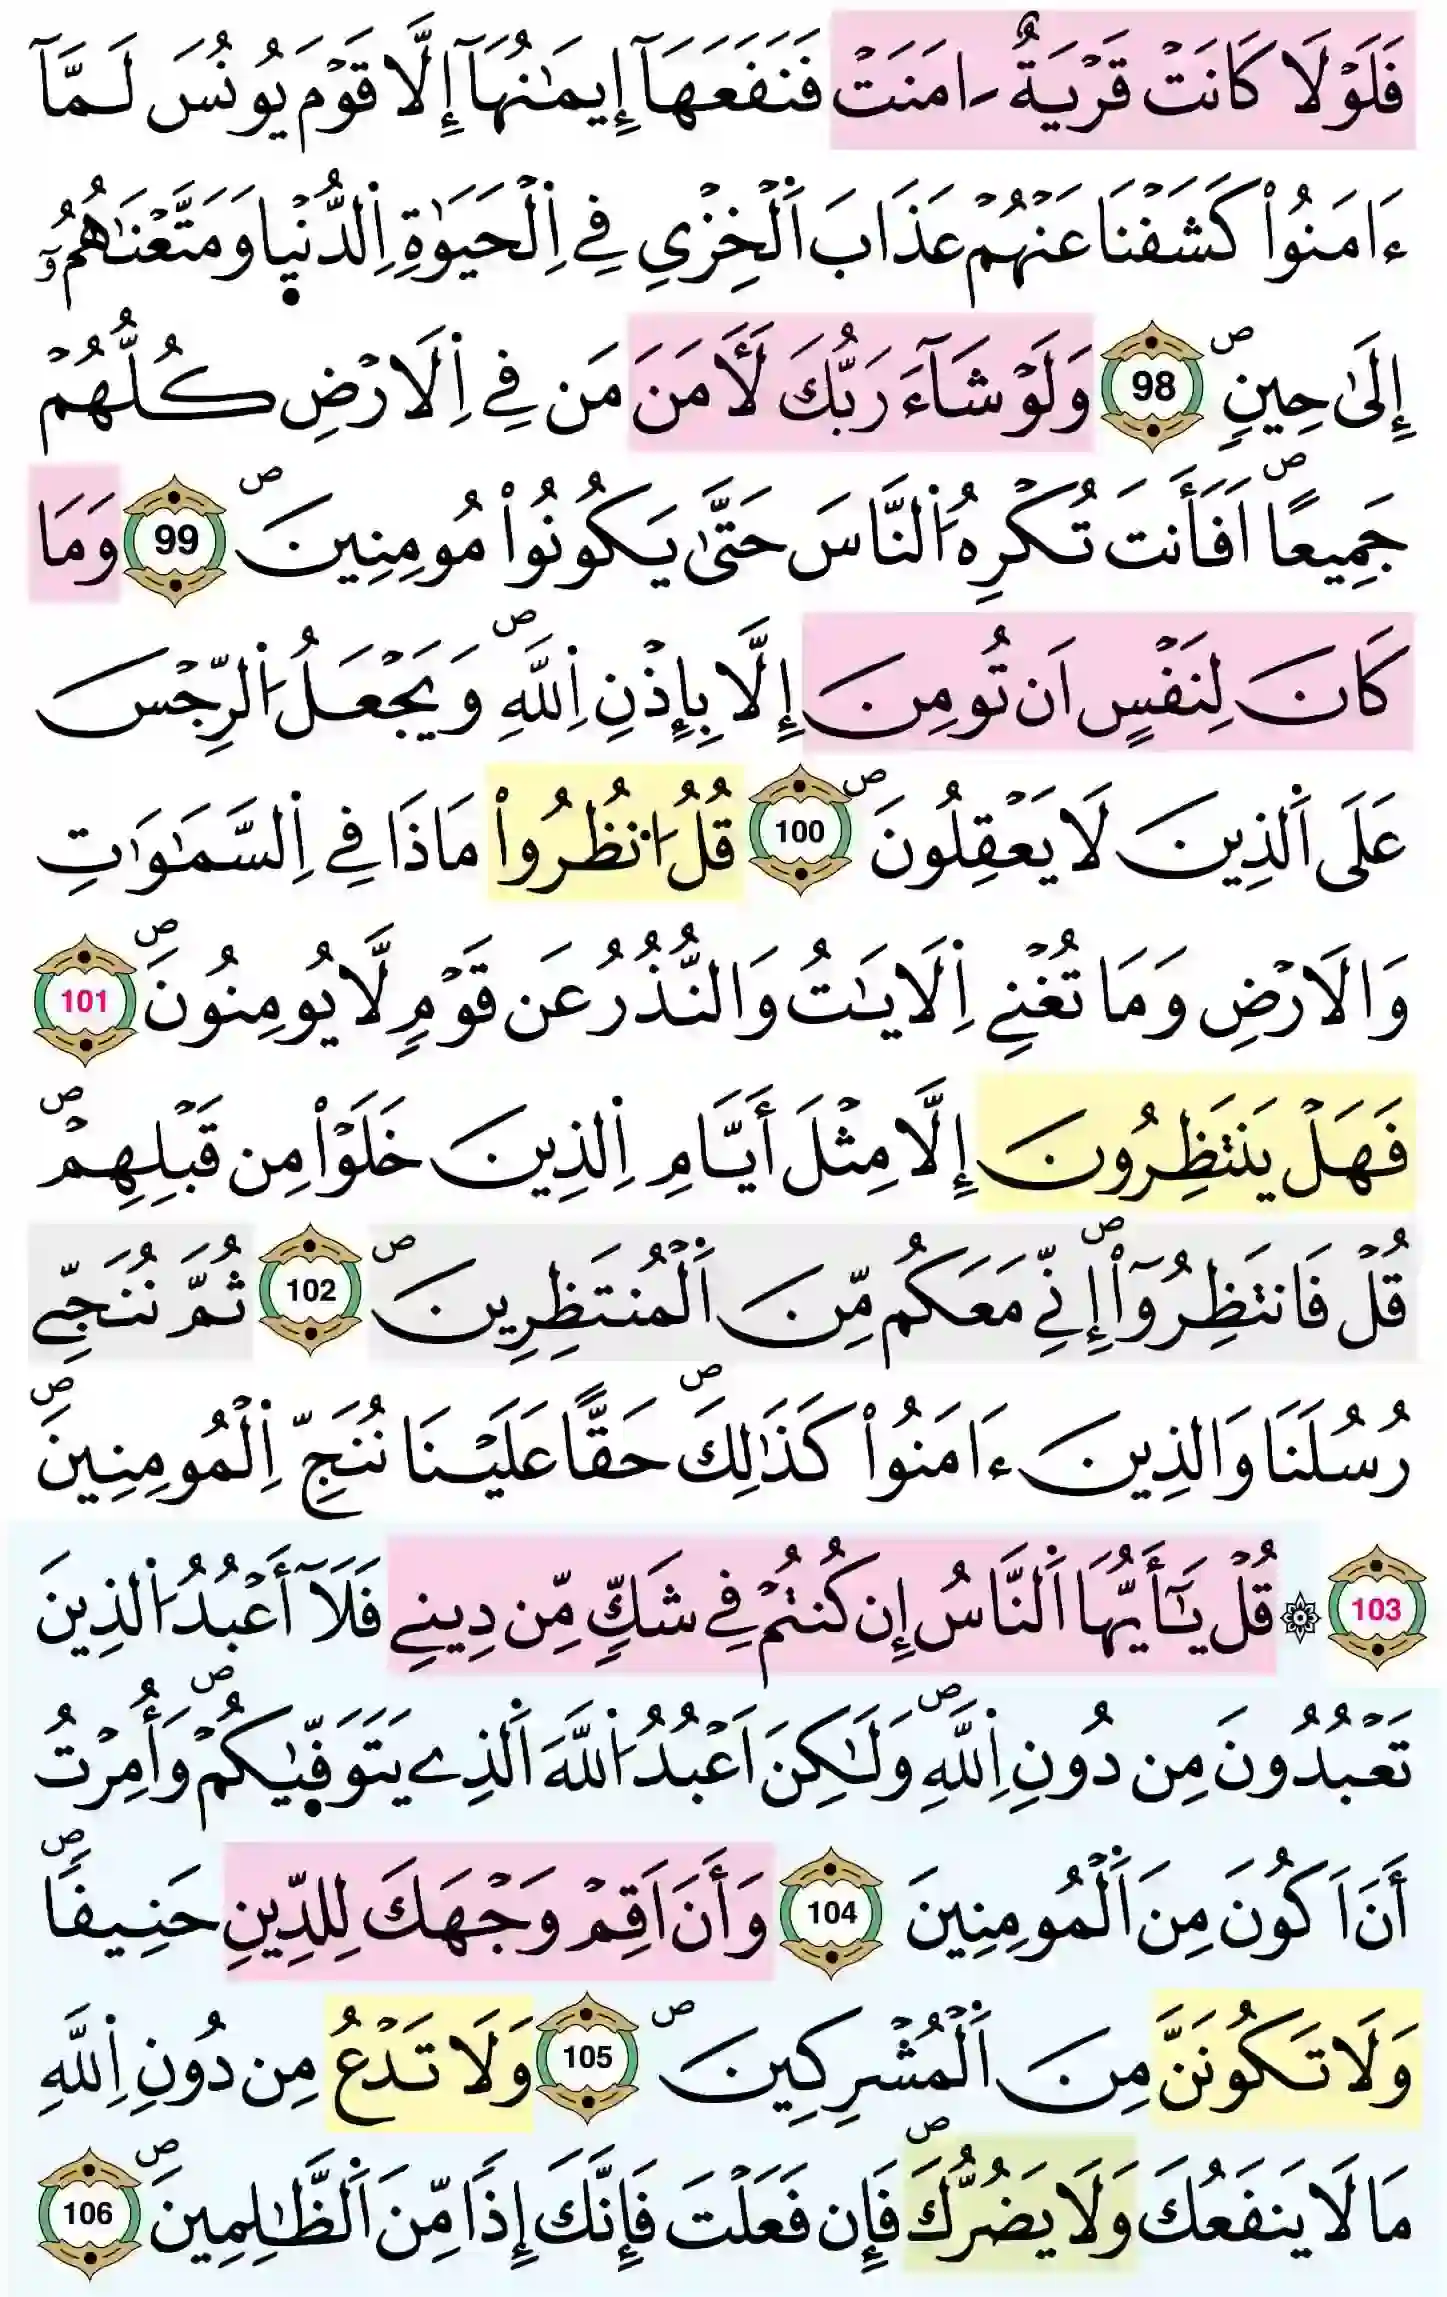 فَلَوْلَا كَانَتْ قَرْيَةٌ ـٰامَنَتْ فَنَفَعَهَآ إِيمَٰنُهَآ إِلَّا قَوْمَ يُونُسَ لَمَّآ
ءَامَنُواْ كَشَفْنَا عَنْهُمْ عَذَابَ اَ۬لْخِزْيِ فِے اِ۬لْحَيَوٰةِ اِ۬لدُّنْيٜا وَمَتَّعْنَٰهُمُۥٓ
إِلَىٰ حِينٍۖ 98 وَلَوْ شَآءَ رَبُّكَ لَأٓمَنَ مَن فِے اِ۬لَارْضِ كُلُّهُمْ
جَمِيعاًۖ اَفَأَنتَ تُكْرِهُ اُ۬لنَّاسَ حَتَّىٰ يَكُونُواْ مُومِنِينَۖ 99 وَمَا
كَانَ لِنَفْسٍ اَن تُومِنَ إِلَّا بِإِذْنِ اِ۬للَّهِۖ وَيَجْعَلُ اُ۬لرِّجْسَ
عَلَى اَ۬لذِينَ لَا يَعْقِلُونَۖ 100 قُلُ اُ۟نظُرُواْ مَاذَا فِے اِ۬لسَّمَٰوَٰتِ
وَالَارْضِ وَمَا تُغْنِے اِ۬لَايَٰتُ وَالنُّذُرُ عَن قَوْمٍ لَّا يُومِنُونَۖ 101
فَهَلْ يَنتَظِرُونَ إِلَّا مِثْلَ أَيَّامِ اِ۬لذِينَ خَلَوْاْ مِن قَبْلِهِمْۖ
قُلْ فَانتَظِرُوٓاْۖ إِنِّے مَعَكُم مِّنَ اَ۬لْمُنتَظِرِينَۖ 102 ثُمَّ نُنَجِّے
رُسُلَنَا وَالذِينَ ءَامَنُواْ كَذَٰلِكَۖ حَقّاً عَلَيْنَا نُنَجِّ اِ۬لْمُومِنِينَۖ
103 ۞ قُلْ يَٰٓأَيُّهَا اَ۬لنَّاسُ إِن كُنتُمْ فِے شَكٍّ مِّن دِينِے فَلَآ أَعْبُدُ اُ۬لذِينَ
تَعْبُدُونَ مِن دُونِ اِ۬للَّهِۖ وَلَٰكِنَ اَعْبُدُ اُ۬للَّهَ اَ۬لذِے يَتَوَفّٜيٰكُمْۖ وَأُمِرْتُ
أَنَ اَكُونَ مِنَ اَ۬لْمُومِنِينَ 104 وَأَنَ اَقِمْ وَجْهَكَ لِلدِّينِ حَنِيفاًۖ
وَلَا تَكُونَنَّ مِنَ اَ۬لْمُشْرِكِينَۖ 105 وَلَا تَدْعُ مِن دُونِ اِ۬للَّهِ
مَا لَا يَنفَعُكَ وَلَا يَضُرُّكَۖ فَإِن فَعَلْتَ فَإِنَّكَ إِذاً مِّنَ اَ۬لظَّٰلِمِينَۖ 106